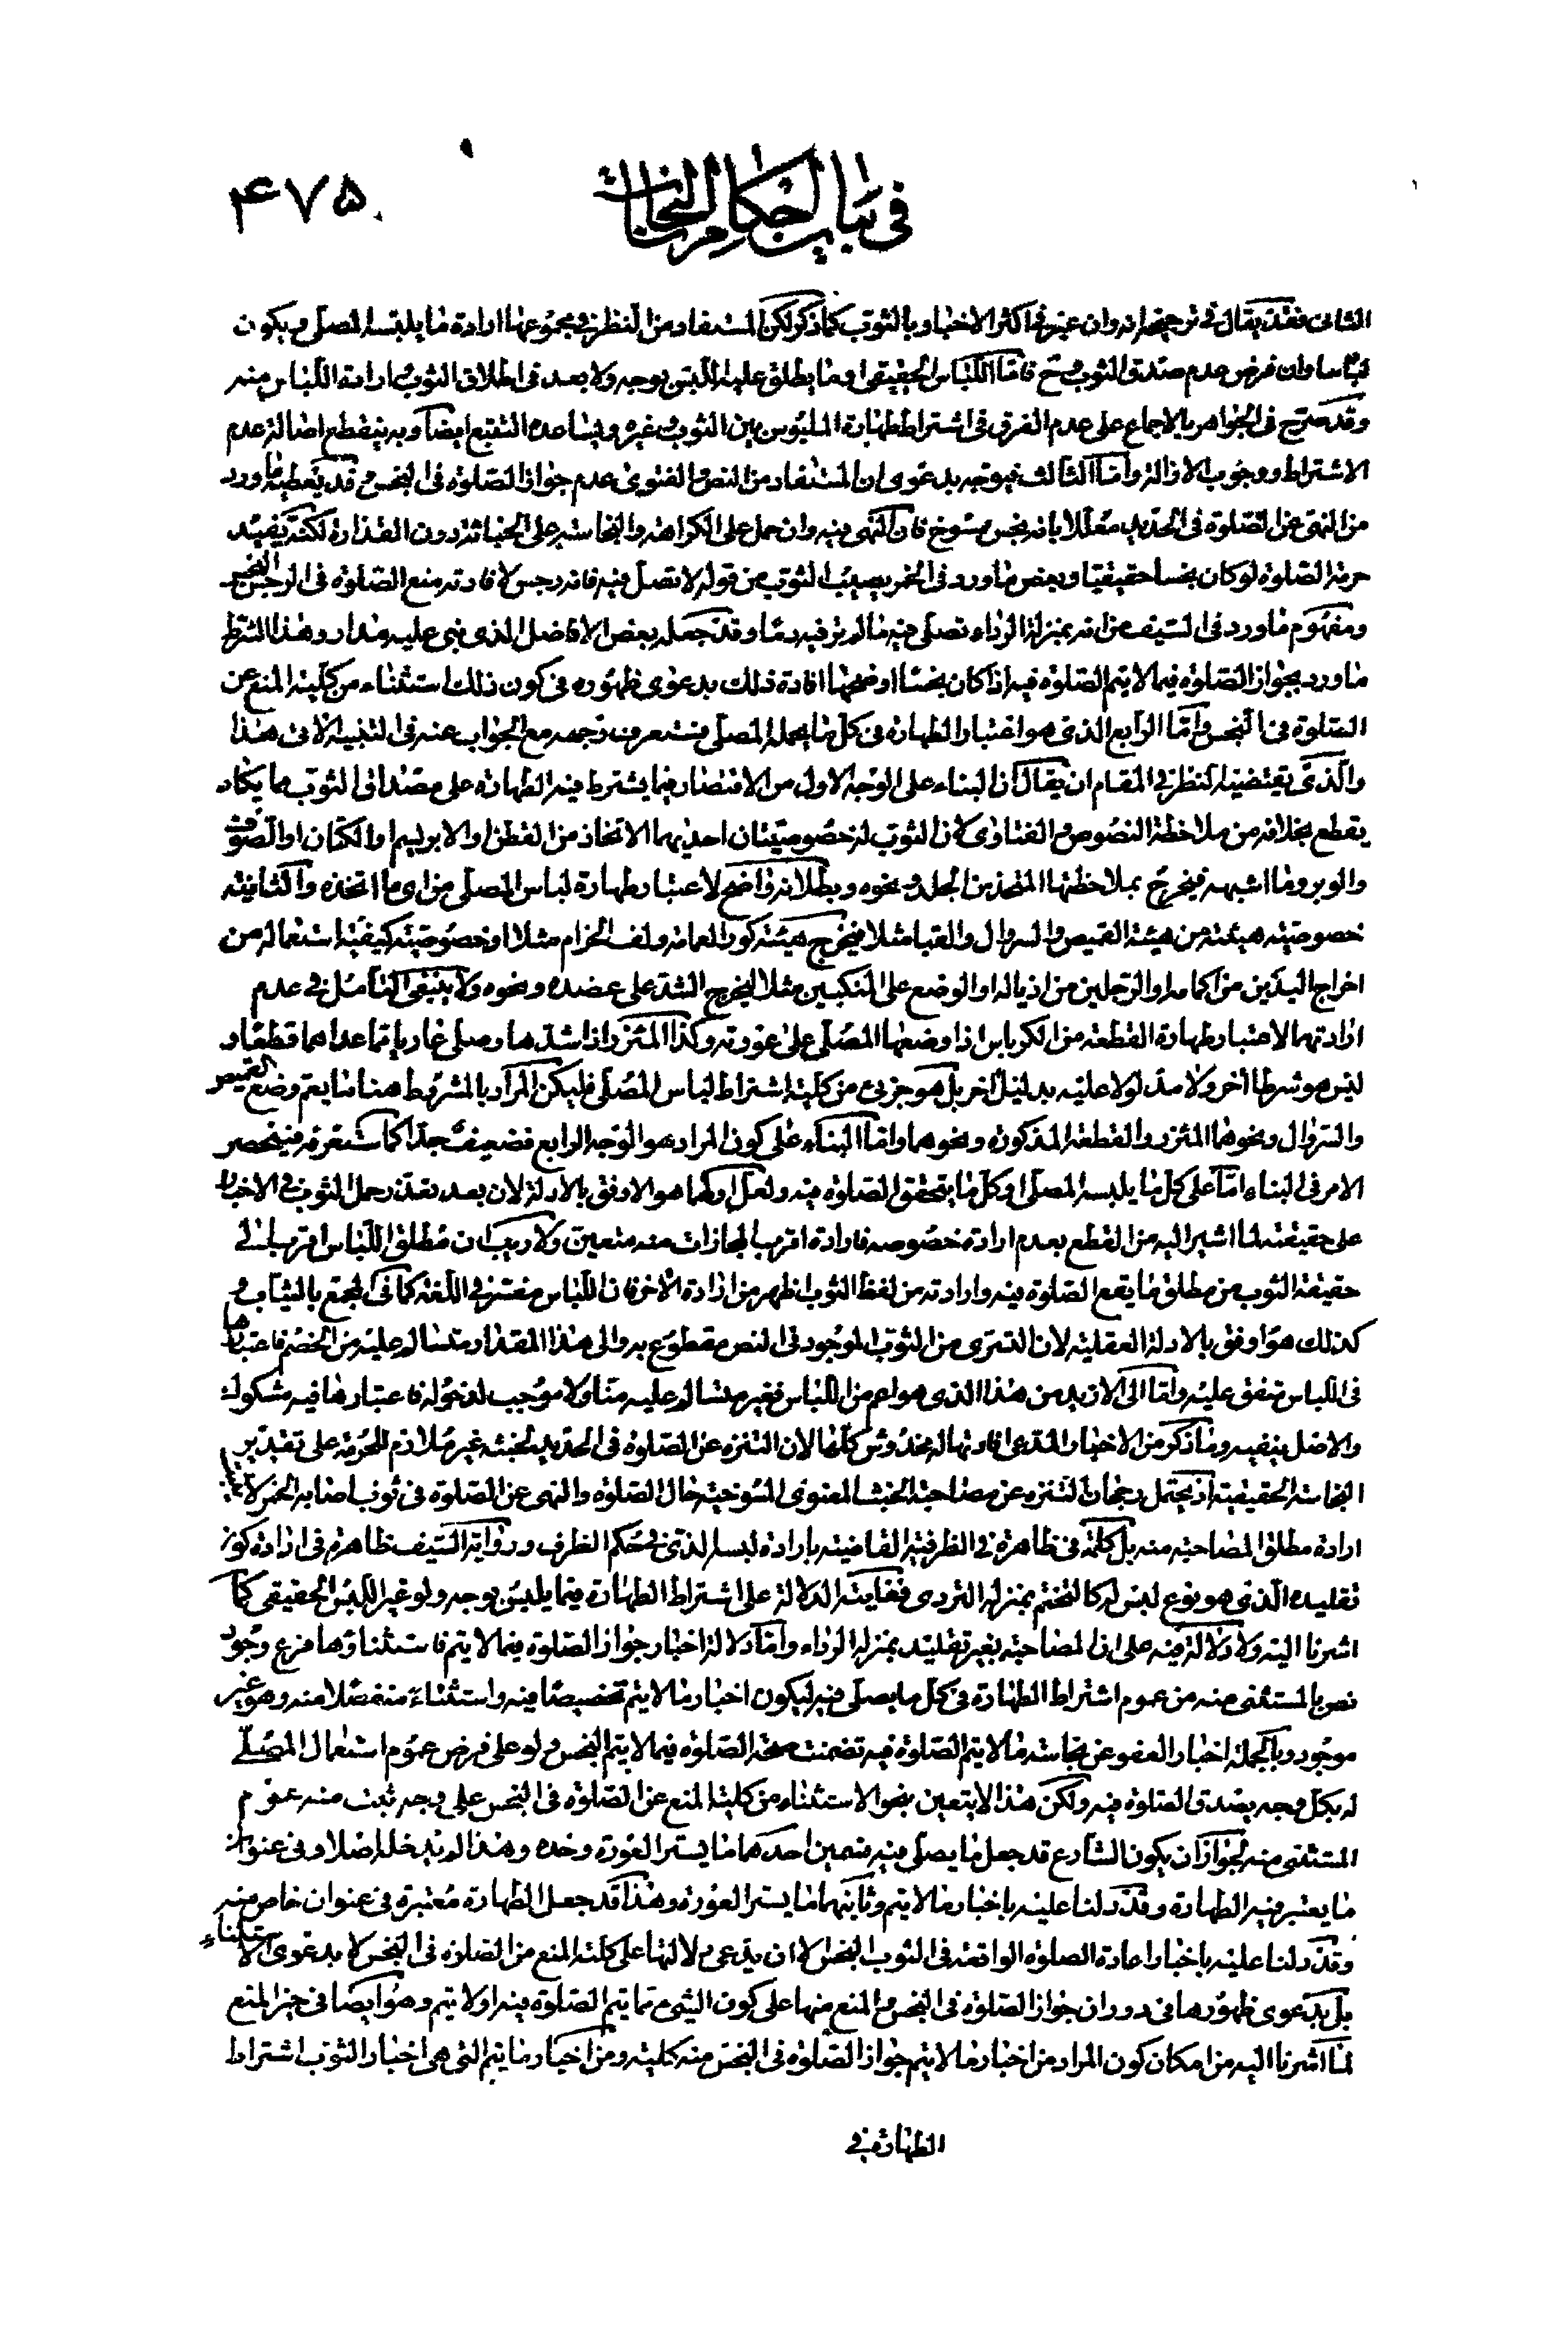 في بيان احكام النجاسات
۴۷۵
الثاني فقد يقال في ترجيحه انه وان عبّر في اكثر الاخبار بالثوب كما ذكر لكن المستفاد من النظر في مجموعها ارادة ما يلبسه المصلي ويكون
لباسا وان فرض عدم صدق الثوب ح فامّا اللباس الحقيقي او ما يطلق عليه اللبس بوجه ولا بعد في اطلاق الثوب بارادة اللباس منه
وقد صرّح في الجواهر بالاجماع على عدم الفرق في اشتراط طهارة الملبوس بين الثوب وغيره ويساعده التتبع ايضا وبه ينقطع اصالة عدم
الاشتراط ووجوب الازالة وامّا الثالث فيوجه بدعوى ان المستفاد من النص والفتوى عدم جواز الصّلوة في النجس وقد يعطيه ما ورد
من النهي عن الصّلوة في الحديد معللا بانه نجس ممسوخ فان النهي فيه وان حمل على الكراهة والنجاسة على الخباثة دون القذارة لكنه يفيد
حرمة الصّلوة لو كان نجسا حقيقيّا وبعض ما ورد في الخمر يصيب الثوب من قوله لا تصل فيه فانه رجس لافادته منع الصّلوة في الرجس النجس
ومفهوم ما ورد في السّيف من انه بمنزلة الرداء تصلّي فيه ما لم تر فيه دمّا وقد جعله بعض الافاضل الذي بنى عليه مدار وهذا الشرط
ما ورد بجواز الصّلوة فيما لا يتم الصّلوة فيه اذا كان نجسًا اوضحها افادة ذلك بدعوى ظهوره في كون ذلك استثناء من كليّة المنع عن
الصّلوة في النجس وامّا الرابع الذي هو اعتبار الطهارة في كل ما يحمله المصلي فستعرف وجهه مع الجواب عنه في التنبيه الاتي هذا
والّذي يقتضيه النظر في المقام ان يقال ان البناء على الوجه الاول من الاقتصار فيما يشترط فيه الطهارة على مصداق الثوب مما يكاد
يقطع بخلافه من ملاحظة النصوص والفتاوى لان الثوب له خصوصيّتان احديهما الاتخاذ من القطن والابريسم والكتان او الصّوف
والوبر وما اشبهه فيخرج بملاحظتها المتخذ من الجلد ونحوه وبطلانه واضح لاعتبار طهارة لباس المصلي من اي ما اتخذه والثانية
خصوصيّة هيئته من هيئة القميص والسروال والقبا مثلا فيخرج هيئة كور العمامة ولف الحزام مثلا او خصوصيّة كيفيّة استعماله من
اخراج اليدين من اكمامه او الرّجلين من اذياله او الوضع على المنكبين مثلا ليخرج الشد على عضده ونحوه ولا ينبغي التامّل في عدم
ارادتهما لاعتبار طهارة القطعة من الكرباس اذا وضعها المصلّي على عورته وكذا المئزر اذا شدّها وصلى عاريا مما عداهما قطعًا و
ليس هو شرطا اخر ولا مدلولا عليه بدليل اخر بل هو جزئي من كليّة اشتراط لباس المصلّي فليكن المراد بالمشروط هنا ما يعم وضع القميص
والسّروال ونحوهما المئزر والقطعة المذكورة ونحوهما وامّا البناء على كون المراد هو الوجه الرابع فضعيف جدّا كما ستعرفه فينحصر
الامر في البناء امّا على كل ما يلبسه المصلّي او كل ما يتحقق الصّلوة فيه ولعلّ اولهما هو الاوفق بالادلة لان بعد تعذر حمل الثوب في الاخبار
على حقيقته لما اشير اليه من القطع بعدم ارادة خصوصه فارادة اقرب المجازات منه متعين ولا ريب ان مطلق اللباس اقرب الى
حقيقة الثوب من مطلق ما يقع الصّلوة فيه وارادته من لفظ الثوب اظهر من ارادة الاخر فان اللباس مفسّر في اللغة كما في المجمع بالثياب و
كذلك هو اوفق بالادلة العقلية لان التعرّى من الثوب الموجود في النص مقطوع به والى هذا المقدار متسالم عليه من الخصم فاعتبارها
في اللباس متفق عليه وامّا الى الازيد من هذا الذي هو اعم من اللباس فغير متسالم عليه منّا ولا موجب لدخوله فاعتبارها فيه مشكوك
والاصل ينفيه وما ذكر من الاخبار المدعى افادتها له مخدوش كلّها لان التنزه عن الصّلوة في الحديد لخبثه غير ملازم للحرمة على تقدير
النجاسة الحقيقية اذ يحتمل رجحان التنزه عن مصاحبة الخبث المعنوي المسوخيّة حال الصّلوة والنهي عن الصّلوة في ثوب اصابه الخمر لا يقتضي
ارادة مطلق المصاحبة منه بل كلمة في ظاهرة في الظرفية القاضية بارادة لبسه الذي في حكم الظرف ورواية السّيف ظاهرة في ارادة كون
تقليده الّذي هو نوع لبس له كالتختم بمنزلة التردي فغايته الدلالة على اشتراط الطهارة فيما يلبس بوجه ولو غير اللبس الحقيقي كما
اشرنا اليه ولا دلالة فيه على ان المصاحبة بغير تقليد بمنزلة الرداء وامّا دلالة اخبار جواز الصّلوة فيما لا يتم فاستثناؤها فرع وجود
نص بالمستثنى منه من عموم اشتراط الطهارة في كل ما يصلى فيه ليكون اخبار ما لا يتم تخصيصًا فيه واستثناءً منفصلا منه وهو غير
موجود وبالجملة اخبار العفو عن نجاسة ما لا يتم الصّلوة فيه تضمنت صحّة الصّلوة فيما لا يتم النجس ولو على فرض عموم استعمال المصلّي
له بكل وجه يصدق الصّلوة فيه ولكن هذا لا يتعين بنحو الاستثناء من كلية المنع عن الصّلوة في النجس على وجه ثبت منه عموم
المستثنى منه لجواز ان يكون الشارع قد جعل ما يصلى فيه قسمين احدهما ما يستر العورة وحده وهذا لم يدخله اصلا في عنوان
ما يعتبر فيه الطهارة وقد دلنا عليه باخبار ما لا يتم وثانيهما ما يستر العورة وهذا قد جعل الطهارة معتبرة في عنوان خاص منه
وقد دلنا عليه باخبار اعادة الصلوة الواقعة في الثوب النجس الا ان يدّعى دلالتها على كلية المنع من الصّلوة في النجس لا بدعوى الاستثناء
بل بدعوى ظهورها في دوران جواز الصّلوة في النجس والمنع منها على كون الشيء مما يتم الصّلوة فيه او لا يتم وهو ايضا في حيّز المنع
لما اشرنا اليه من امكان كون المراد من اخبار ما لا يتم جواز الصّلوة في النجس منه كلية ومن اخبار ما يتم التي هي اخبار الثوب اشتراط
الطهارة في